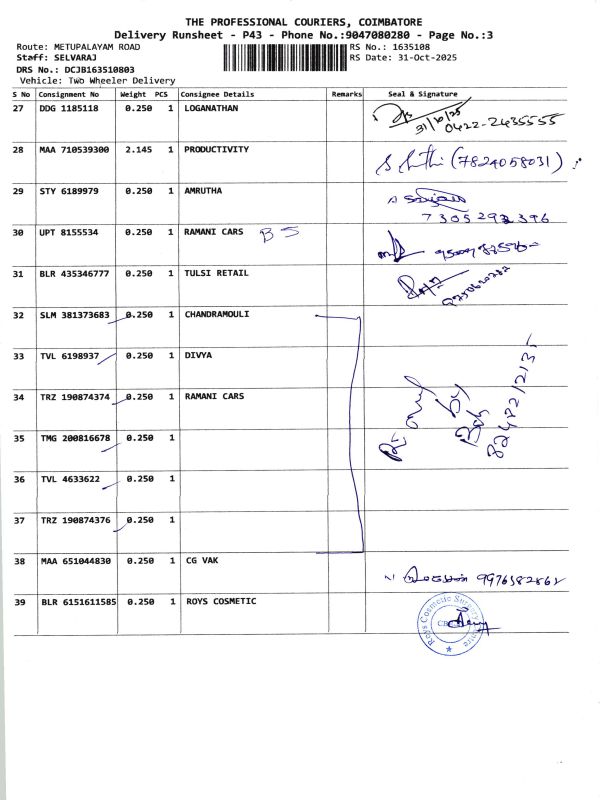 THE PROFESSIONAL COURIERS, COIMBATORE
Delivery Runsheet - P43 - Phone No.:9047080280 - Page No.:3
Route: METUPALAYAM ROAD RS No.: 1635108
Staff: SELVARAJ RS Date: 31-Oct-2025
DRS No.: DCJB163510803
Vehicle: Two Wheeler Delivery
S No Consignment No Weight PCS Consignee Details Remarks Seal & Signature
27 DDG 1185118 0.250 1 LOGANATHAN
31/10/25
0422-2435555
28 MAA 710539300 2.145 1 PRODUCTIVITY (7824058031)
29 STY 6189979 0.250 1 AMRUTHA
7305292396
30 UPT 8155534 0.250 1 RAMANI CARS BS
31 BLR 435346777 0.250 1 TULSI RETAIL
32 SLM 381373683 0.250 1 CHANDRAMOULI
33 TVL 6198937 0.250 1 DIVYA
34 TRZ 190874374 0.250 1 RAMANI CARS
35 TMG 200816678 0.250 1
36 TVL 4633622 0.250 1
37 TRZ 190874376 0.250 1
38 MAA 651044830 0.250 1 CG VAK 9976382862
39 BLR 6151611585 0.250 1 ROYS COSMETIC
Roys Cosmetic Surgery Centre